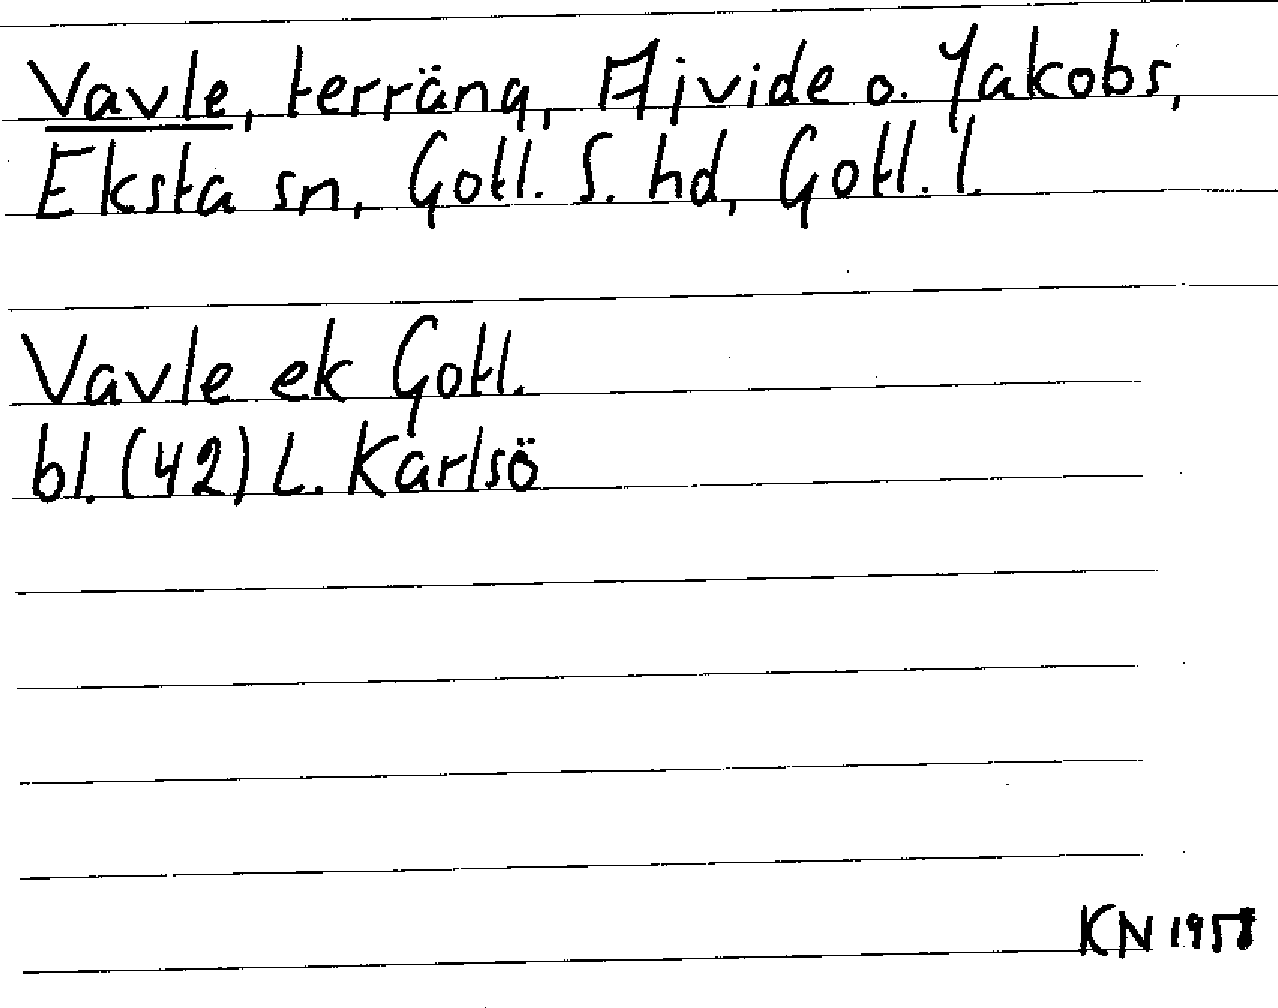 Vavle, terräng, Ajvide o. Jakobs,
Eksta sn, Gotl. S. hd, Gotl. l.
Vavle ek Gotl.
bl. (42) L. Karlsö
KN 1958